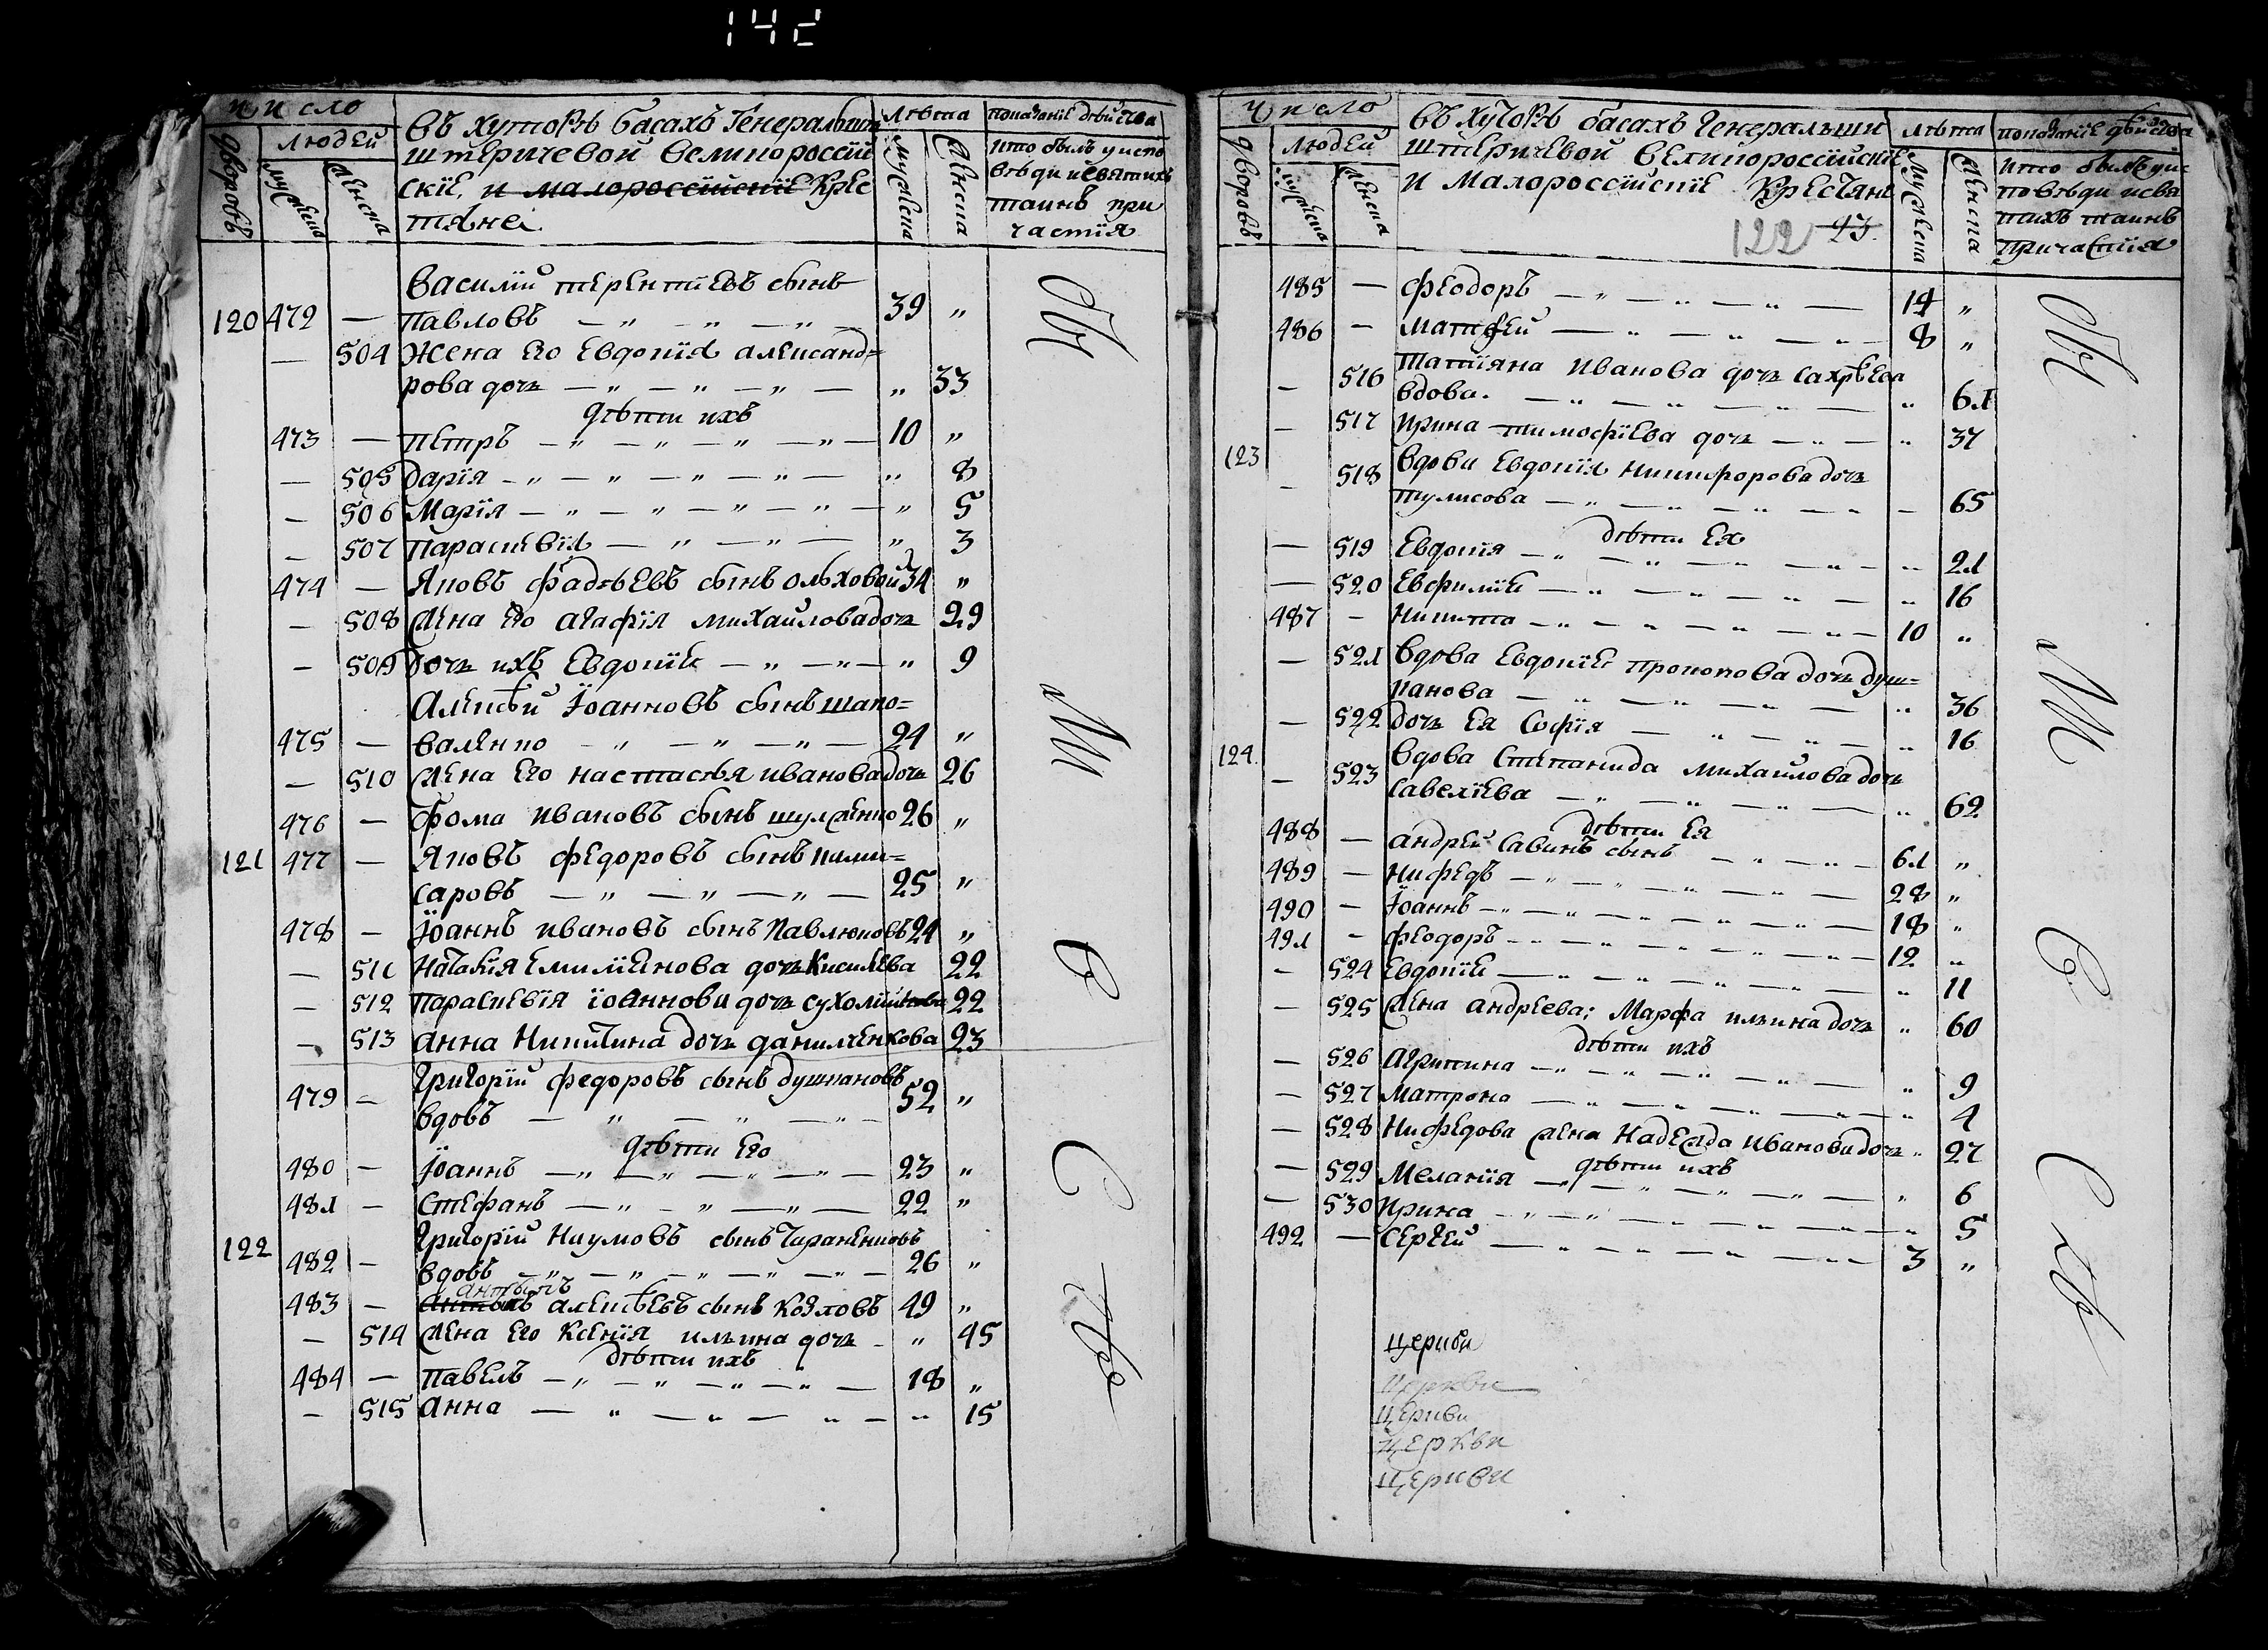 142
число
людей
дворовъ
мужеска
женска
въ хуторѣ Басахъ Генеральши
штеричевой великороссій
скіе, и малороссійскіе кре
стяне
лѣта
мужеска
женска
показаніе дѣйства
кто былъ у испо
вѣди и святыхъ
таинъ при
частія
Василій терентіевъ сынъ
120 472 — павловъ — „ — „ — „ — 39 „
— 504 Жена его Евдокія александ=
рова дочь — „ — „ — „ — „ 33
дѣти ихъ
473 — петръ — „ — „ — „ — „ — 10 „
— 505 дарія — „ — „ — „ — „ — „ 8
— 506 Марія — „ — „ — „ — „ — „ 5
— 507 параскевія — „ — „ — „ 3
474 — Яковъ фадѣевъ сынъ ольховой 34 „
— 508 жена его агафія михайлова дочь 29
— 509 дочь ихъ Евдокіе — „ — „ — „ 9
Алексѣй Іоанновъ сынъ шапо=
475 — валенко — „ — „ — „ — 24 „
— 510 жена его настасья иванова дочь 26
476 — фома ивановъ сынъ шулженко 26 „
121 477 — Яковъ федоровъ сынъ ками=
саровъ — „ — „ — „ — 25 „
478 — Іоаннъ ивановъ сынъ павлюковъ 24 „
— 511 Наталія Емиліенова дочь Киселева 22
— 512 параскевія іоаннови дочь 22
— 513 анна Никитина дочь данилченкова 23
479 — григорій федоровъ сынъ душкановъ
вдовъ — „ — „ — „ — 52 „
дѣти его
480 — Іоаннъ — „ — „ — „ — „ — 23 „
481 — Стефанъ — „ — „ — „ — 22 „
122 григорій Наумовъ сынъ
482 — вдовъ — „ — „ — „ — „ — „ — 26 „
483 — алексѣевъ сынъ Козловъ 49 „
— 514 жена его Ксенія ильина дочь — „ 45
дѣти ихъ
484 — павелъ — „ — „ — „ — „ — 18 „
— 515 анна — „ — „ — „ — „ 15
Обм
М
О
С
число
людей
дворовъ
мужеска
женска
въ хуторѣ басахъ генеральши
штеричевой великороссійскіе
и малороссійскіе крестяне
122 23.
лѣта
мужеска
женска
показаніе дѣйства
кто былъ у ис
повѣди и свя
тыхъ таинъ
причастія
485 — феодоръ — „ — „ — „ — 14 „
486 — матфей — „ — „ — „ — 8 „
— 516 татіяна иванова дочь сахрѣева
вдова. — „ — „ — „ — „ 61
— 517 ирина тимофіева дочь — „ — „ 37
123 — 518 вдови Евдокія никифорова дочь
тулисова — „ — „ — „ — „ — 65
дѣти Ея
— 519 Евдокія — „ — „ — „ — „ — „ 21
— 520 Евфиміе — „ — „ — „ — „ 16
487 — Никита — „ — „ — „ — „ — 10 „
— 521 вдова Евдокіе прокопова дочь душ=
канова — „ — „ — „ — „ 36
— 522 дочь Ея Софія — „ — „ — „ 16
124. — 523 вдова Степанида михайлова дочь
савеліева — „ — „ — „ — „ 62
дѣти Ея
488 — андрей савинъ сынъ — „ — „ — 61 „
489 — Нифедъ — „ — „ — „ — „ — 28 „
490 — Іоаннъ — „ — „ — „ — „ — 18 „
491 — феодоръ — „ — „ — „ — „ — 12 „
— 524 Евдокіе — „ — „ — „ — „ — „ 11
— 525 жена андреева: Марфа ильина дочь „ 60
дѣти ихъ
— 526 агрипина — „ — „ — „ — „ — „ 9
— 527 матрона — „ — „ — „ — „ — „ 4
— 528 Нифедова жена Надежда иванови дочь „ 27
дѣти ихъ
— 529 меланія — „ — „ — „ — „ — „ 6
— 530 ирина — „ — „ — „ — „ — „ 5
492 — сергей — „ — „ — „ — „ — 3 „
церкви
церкви
церкви
церкви
церкви
М
С